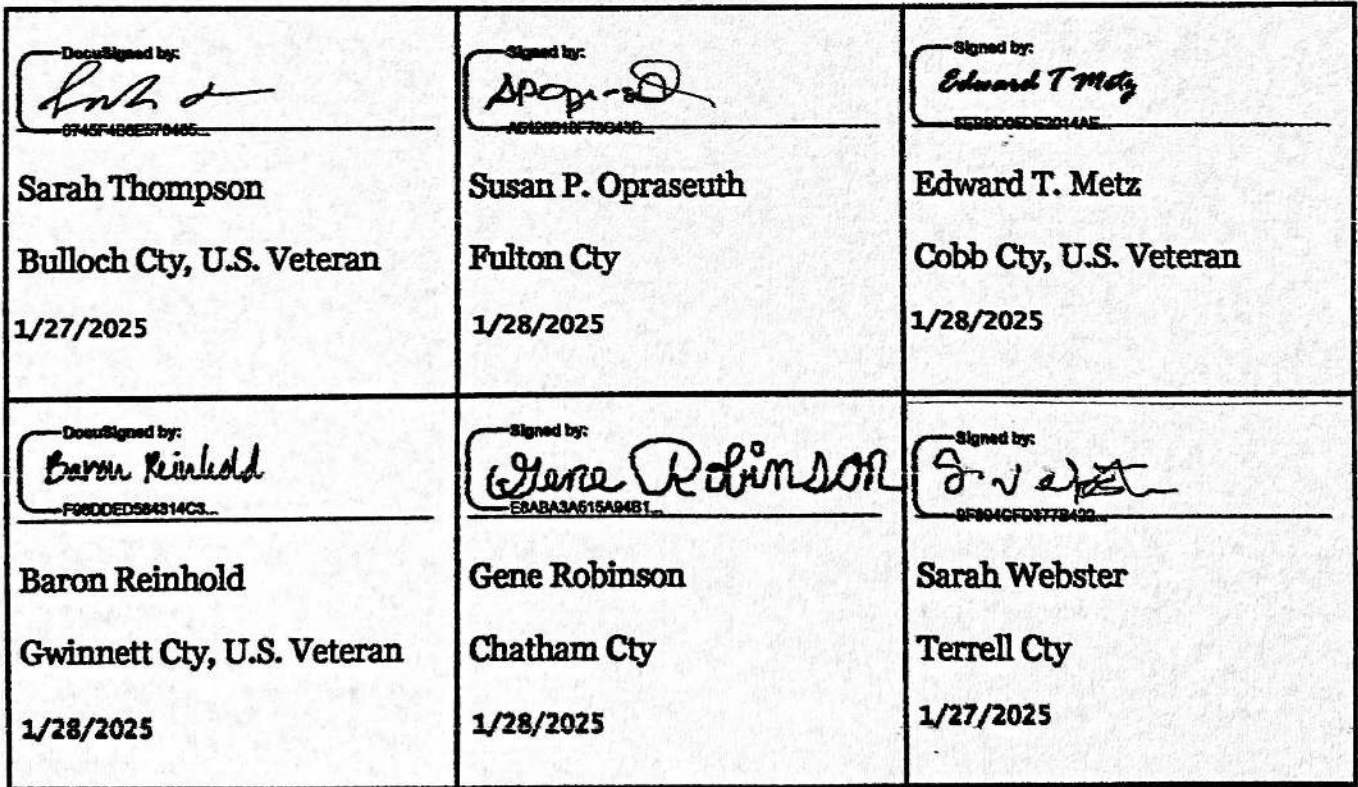 DocuSigned by:
Sarah Thompson
Bulloch Cty, U.S. Veteran
1/27/2025
Signed by:
Susan P. Opraseuth
Fulton Cty
1/28/2025
Signed by:
Edward T Metz
Edward T. Metz
Cobb Cty, U.S. Veteran
1/28/2025
DocuSigned by:
Baron Reinhold
F98DDED584314C3...
Baron Reinhold
Gwinnett Cty, U.S. Veteran
1/28/2025
Signed by:
Gene Robinson
E8ABA3A515A94B1...
Gene Robinson
Chatham Cty
1/28/2025
Signed by:
Sarah Webster
Terrell Cty
1/27/2025